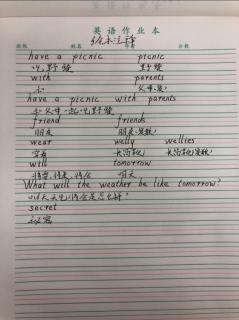 英语作业本
班级 姓名 学号 分数
绘本注释
have a picnic picnic
吃野餐 野餐
with parents
和 父母(复)
have a picnic with parents
和父母一起吃野餐
friend friends
朋友 朋友(复数)
wear welly wellies
穿着 长筒靴 长筒靴(复数)
will tomorrow
将要,将是,将会 明天
What will the weather be like tomorrow?
明天天气将会是怎么样?
secret
秘密